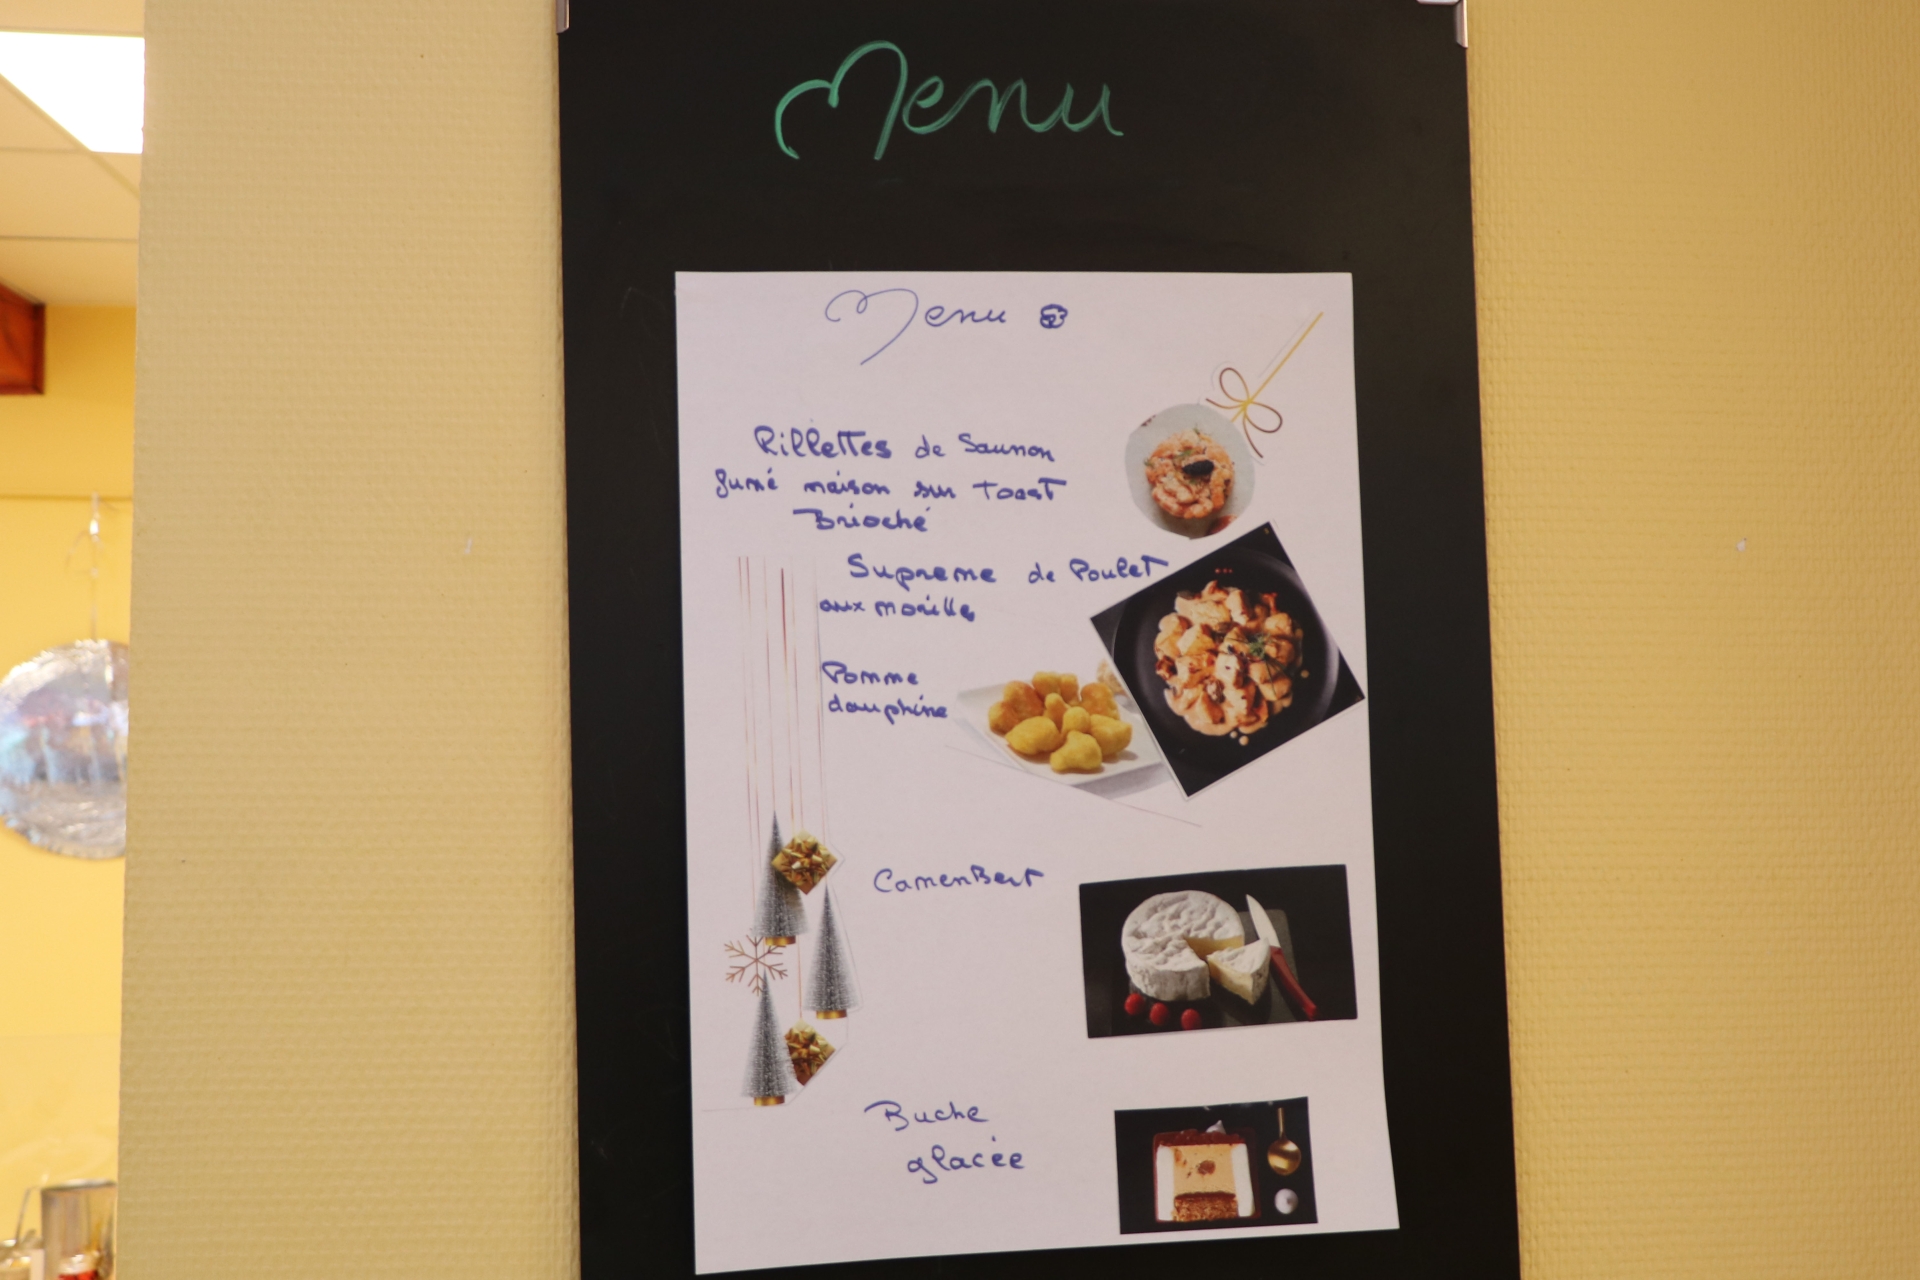 Menu
Menu
Rillettes de Saumon
fumé maison sur Toast
Brioché
Supreme de Poulet
aux morilles
Pomme
dauphine
CamenBert
Buche
glacée